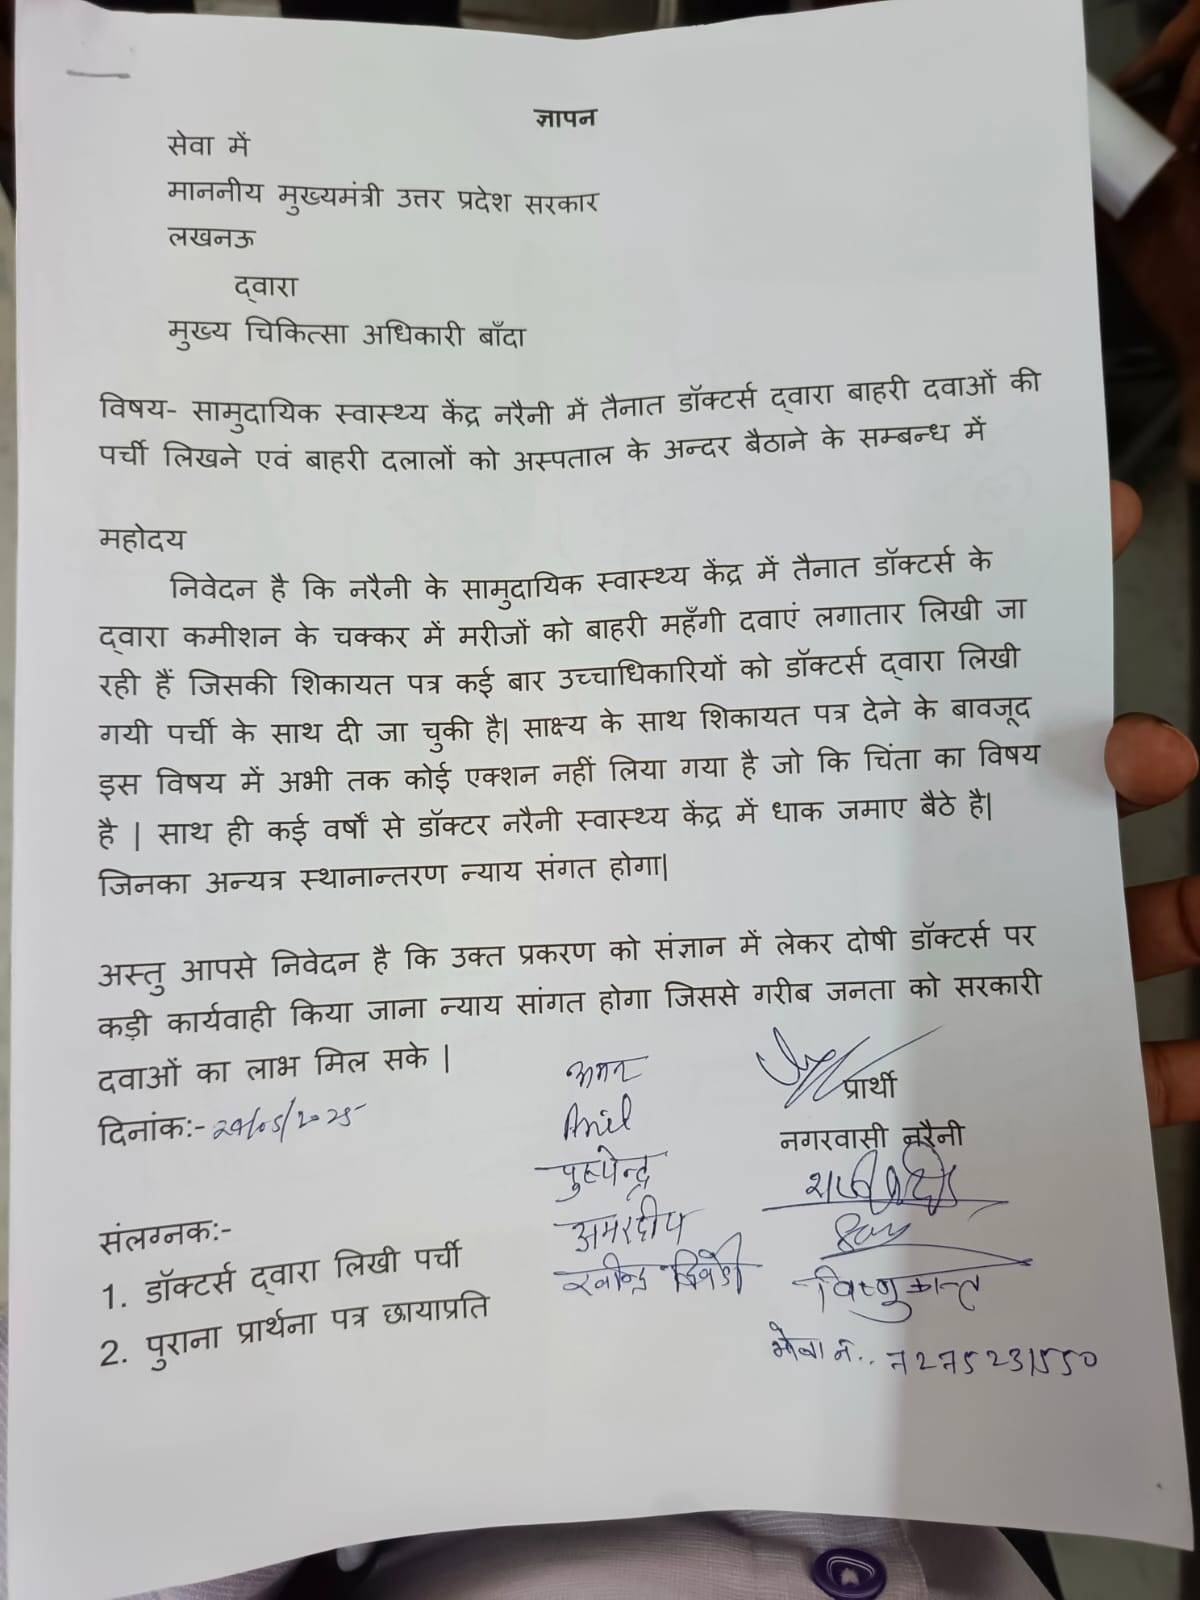 ज्ञापन
सेवा में
माननीय मुख्यमंत्री उत्तर प्रदेश सरकार
लखनऊ
द्वारा
मुख्य चिकित्सा अधिकारी बाँदा
विषय- सामुदायिक स्वास्थ्य केंद्र नरैनी में तैनात डॉक्टर्स द्वारा बाहरी दवाओं की
पर्ची लिखने एवं बाहरी दलालों को अस्पताल के अन्दर बैठाने के सम्बन्ध में
महोदय
निवेदन है कि नरैनी के सामुदायिक स्वास्थ्य केंद्र में तैनात डॉक्टर्स के
द्वारा कमीशन के चक्कर में मरीजों को बाहरी महँगी दवाएं लगातार लिखी जा
रही हैं जिसकी शिकायत पत्र कई बार उच्चाधिकारियों को डॉक्टर्स द्वारा लिखी
गयी पर्ची के साथ दी जा चुकी है| साक्ष्य के साथ शिकायत पत्र देने के बावजूद
इस विषय में अभी तक कोई एक्शन नहीं लिया गया है जो कि चिंता का विषय
है | साथ ही कई वर्षों से डॉक्टर नरैनी स्वास्थ्य केंद्र में धाक जमाए बैठे है|
जिनका अन्यत्र स्थानान्तरण न्याय संगत होगा|
अस्तु आपसे निवेदन है कि उक्त प्रकरण को संज्ञान में लेकर दोषी डॉक्टर्स पर
कड़ी कार्यवाही किया जाना न्याय सांगत होगा जिससे गरीब जनता को सरकारी
दवाओं का लाभ मिल सके |
प्रार्थी
दिनांक:- 29/05/2025
Anil
नगरवासी नरैनी
पुष्पेन्द्र
अमरदीप
रवीन्द्र द्विवेदी
विष्णुकान्त
संलग्नक:-
1. डॉक्टर्स द्वारा लिखी पर्ची
2. पुराना प्रार्थना पत्र छायाप्रति
7275231550